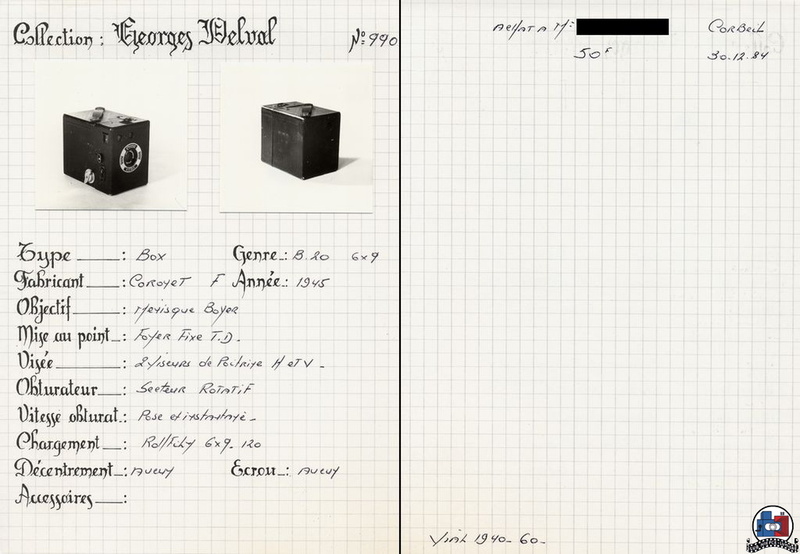 Collection : Georges Delval Nº 990
Type : Box Genre : B. 20 6x9
Fabricant : Coroyet F Année : 1945
Objectif : Ménisque Boyer
Mise au point : Foyer Fixe T.D.
Visée : 2 Viseurs de Poitrine H et V
Obturateur : Secteur Rotatif
Vitesse obturat. : Pose et instantané
Chargement : Rollfilm 6x9 120
Décentrement : Aucun Ecrou : Aucun
Accessoires :
Achat à Mr Corbeil
50 F 30.12.84
Vial 1940-60